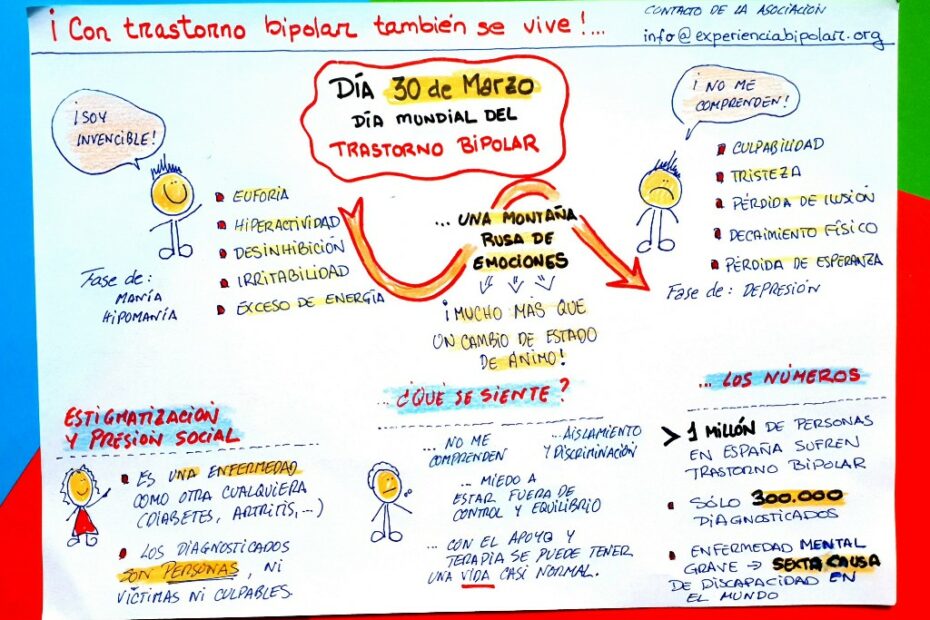 ¡Con trastorno bipolar también se vive!...
CONTACTO DE LA ASOCIACION
info@experienciabipolar.org
DÍA 30 de MARZO
DÍA MUNDIAL DEL
TRASTORNO BIPOLAR
¡SOY
INVENCIBLE!
EUFORIA
HIPERACTIVIDAD
DESINHIBICIÓN
IRRITABILIDAD
EXCESO DE ENERGÍA
Fase de:
MANÍA
HIPOMANÍA
... UNA MONTAÑA
RUSA DE
EMOCIONES
¡MUCHO MÁS QUE
UN CAMBIO DE ESTADO
DE ÁNIMO!
¡NO ME
COMPRENDEN!
CULPABILIDAD
TRISTEZA
PÉRDIDA DE ILUSIÓN
DECAIMIENTO FÍSICO
PÉRDIDA DE ESPERANZA
Fase de: DEPRESIÓN
ESTIGMATIZACIÓN
Y PRESIÓN SOCIAL
ES UNA ENFERMEDAD
COMO OTRA CUALQUIERA
(DIABETES, ARTRITIS,...)
LOS DIAGNOSTICADOS
SON PERSONAS, NI
VÍCTIMAS NI CULPABLES.
... ¿QUÉ SE SIENTE?
... NO ME
COMPRENDEN
... AISLAMIENTO
Y DISCRIMINACIÓN
... MIEDO A
ESTAR FUERA DE
CONTROL Y EQUILIBRIO
... CON EL APOYO Y
TERAPIA SE PUEDE TENER
UNA VIDA CASI NORMAL.
... LOS NÚMEROS
> 1 MILLÓN DE PERSONAS
EN ESPAÑA SUFREN
TRASTORNO BIPOLAR
SÓLO 300.000
DIAGNOSTICADOS
ENFERMEDAD MENTAL
GRAVE → SEXTA CAUSA
DE DISCAPACIDAD EN
EL MUNDO